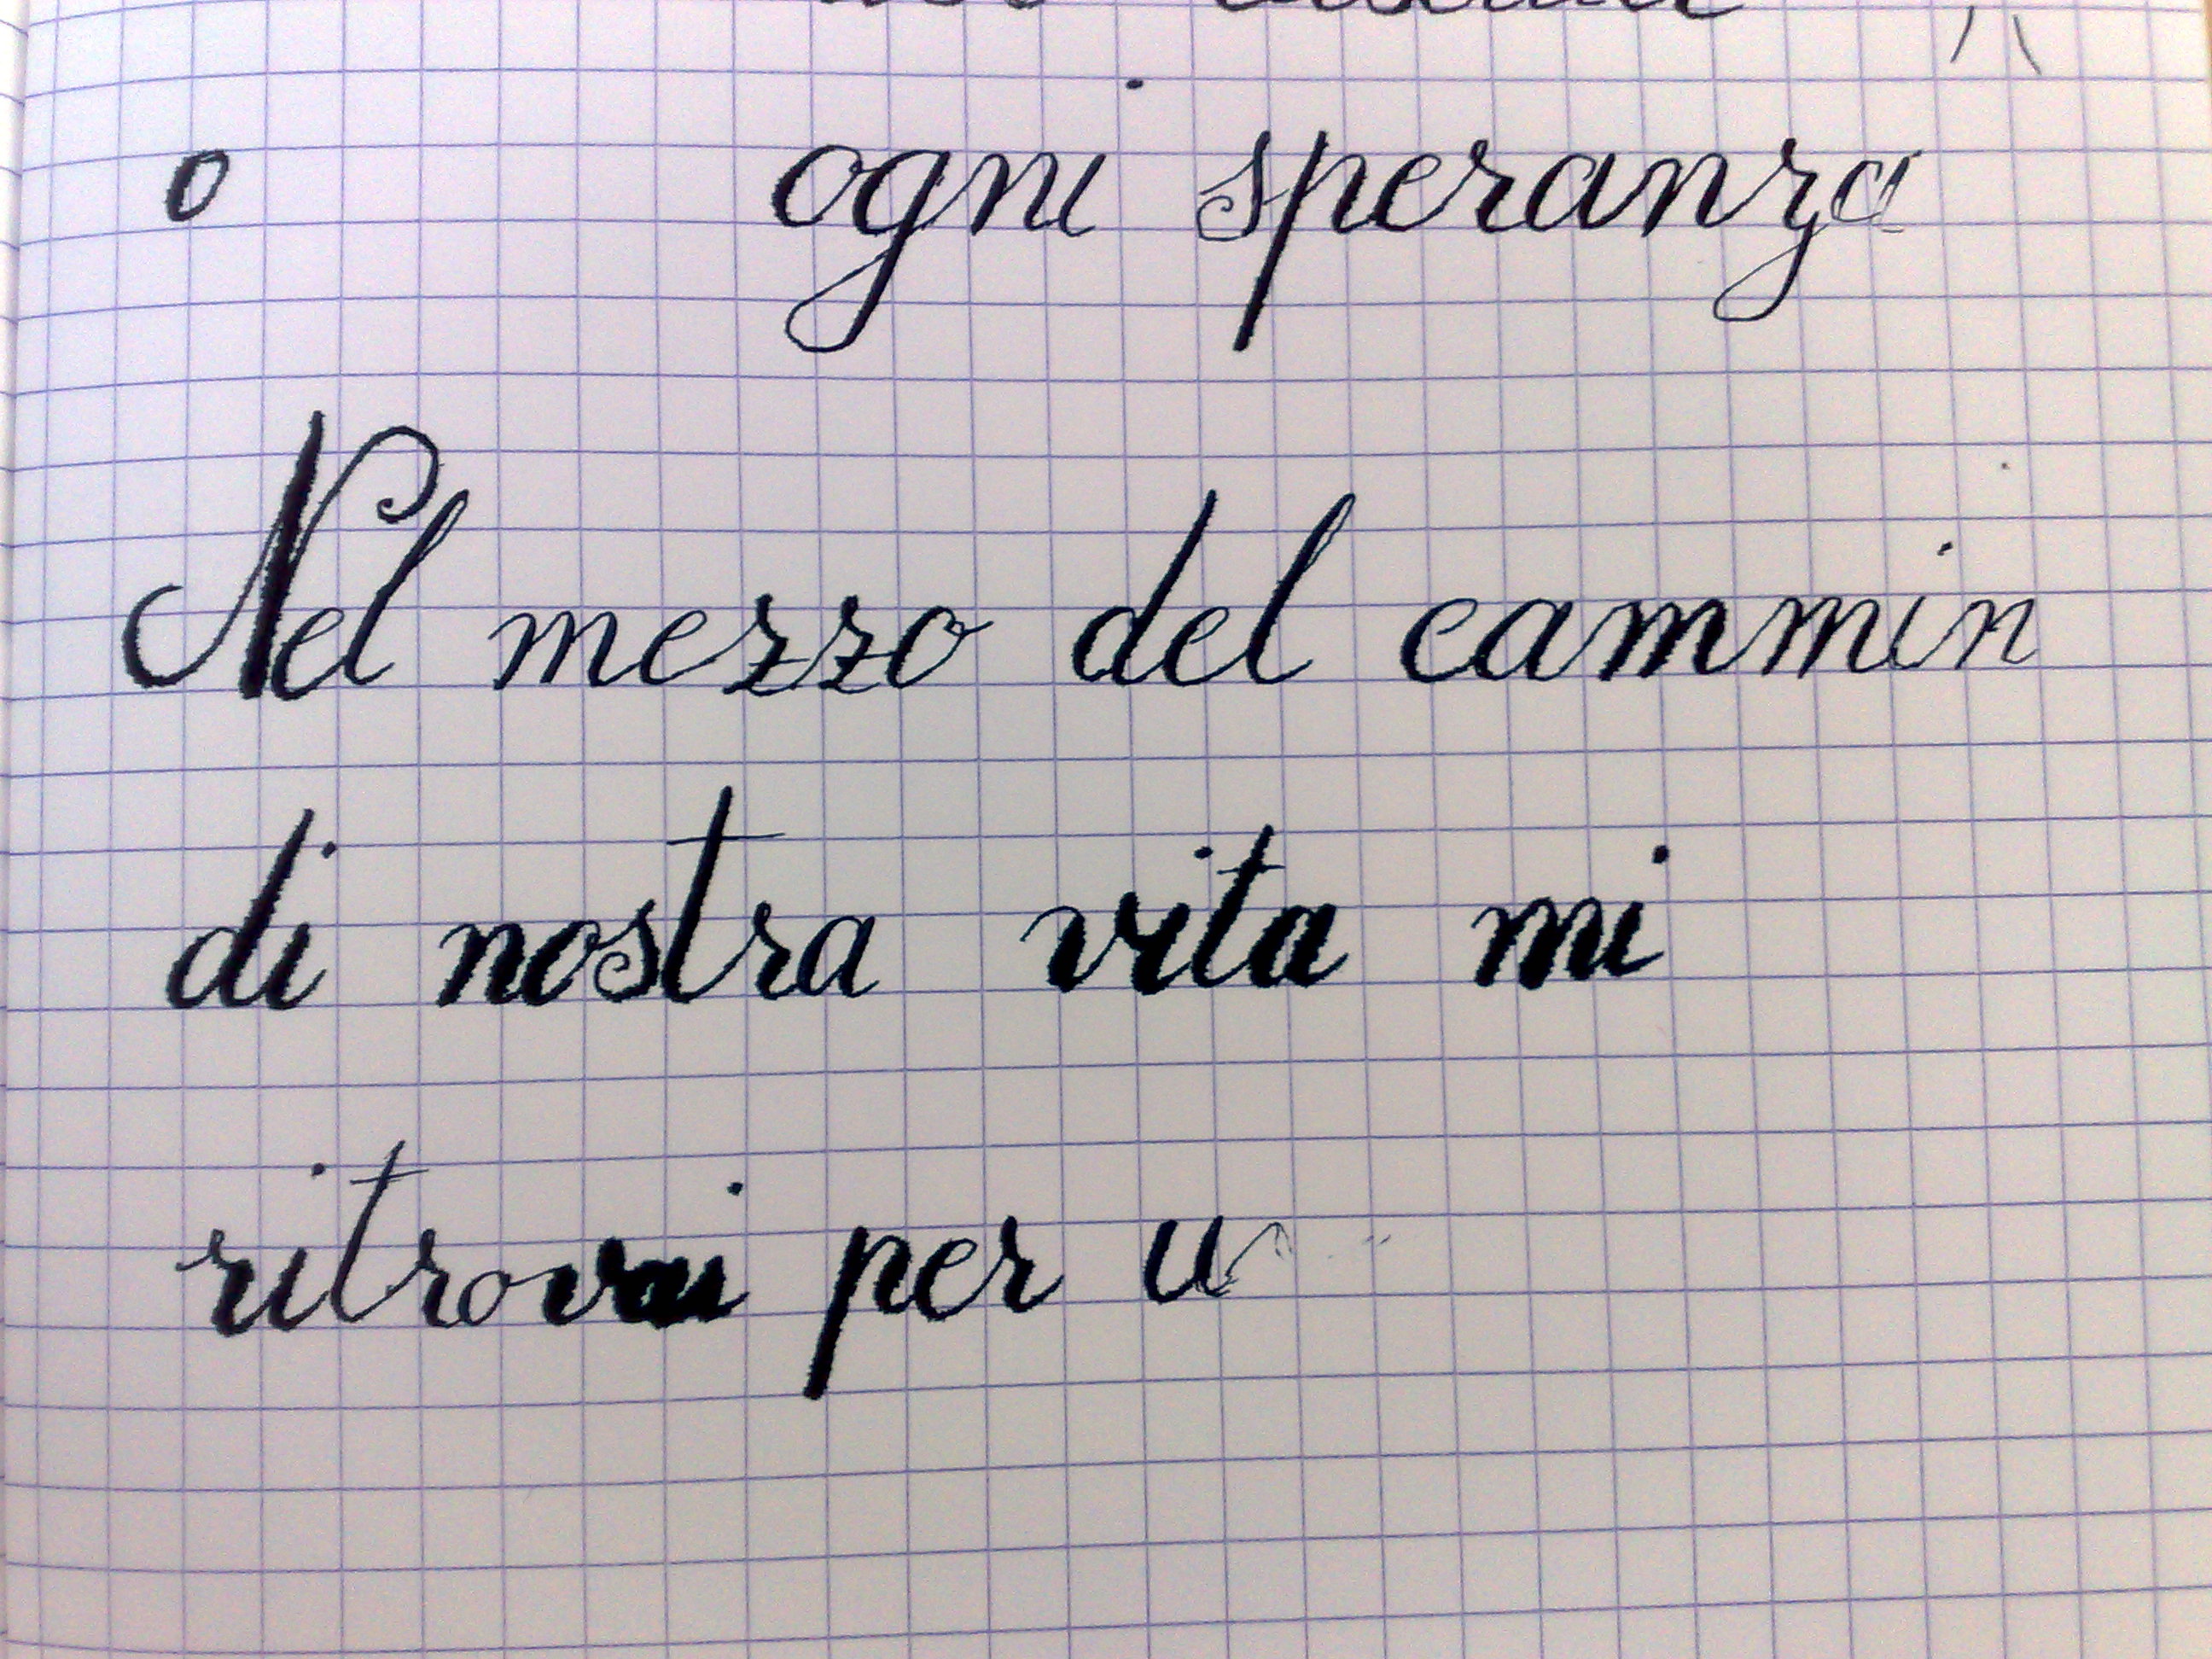 o ogni speranza
Nel mezzo del cammin
di nostra vita mi
ritrovai per u